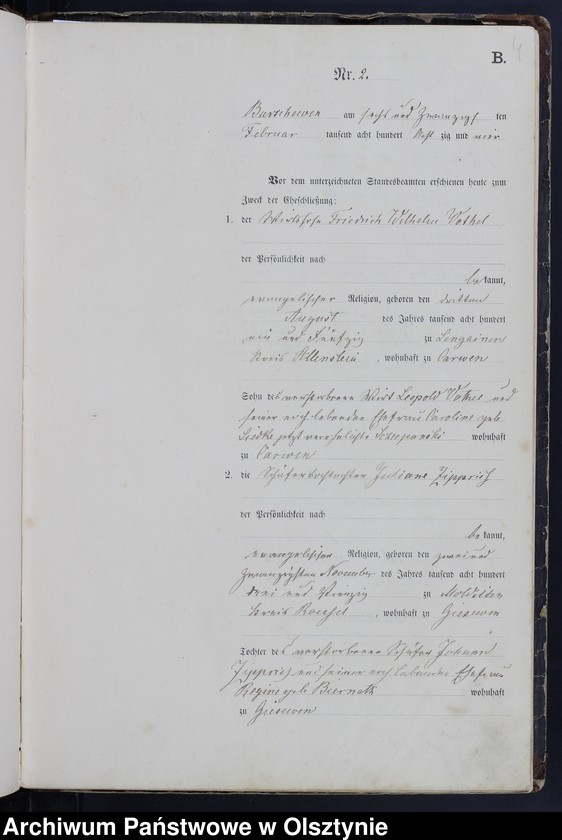 4
B.
Nr. 2.
Burschewen am sechs und zwanzigsten
Februar tausend acht hundert Acht zig und vier
Vor dem unterzeichneten Standesbeamten erschienen heute zum
Zweck der Eheschließung:
1. der Wirthssohn Friedrich Wilhelm Vothel
der Persönlichkeit nach
be kannt,
evangelischer Religion, geboren den dritten
August des Jahres tausend acht hundert
ein und Fünfzig zu Lengainen
Kreis Allenstein, wohnhaft zu Carwen
Sohn des verstorbenen Wirt Leopold Vothel und
seiner noch lebenden Ehefrau Caroline geb.
jetzt verehelichte wohnhaft
zu Carwen
2. die Schäfertochter Juliane Zipprich
der Persönlichkeit nach
be kannt,
evangelischen Religion, geboren den zwei und
zwanzigsten November des Jahres tausend acht hundert
drei und zu
Kreis Roessel, wohnhaft zu Giesewen
Tochter des verstorbenen Schäfer Johann
Zipprich und seiner noch lebenden Ehefrau
Regine geb. wohnhaft
zu Giesewen
Archiwum Państwowe w Olsztynie